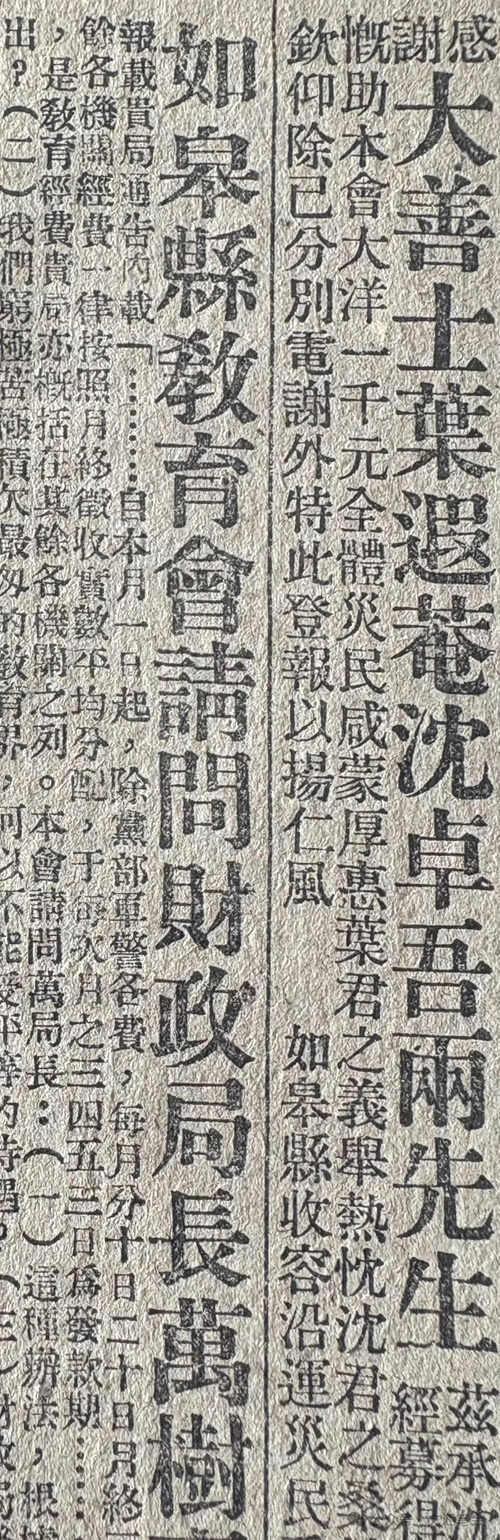 感謝
大善士葉遐菴沈卓吾兩先生
茲承沈
經募得
慨助本會大洋一千元全體災民咸蒙厚惠葉君之義舉熱忱沈君之
欽仰除已分別電謝外特此登報以揚仁風 如皋縣收容沿運災民
如皋縣教育會請問財政局長萬樹
報載貴局通告內載「………自本月一日起,除黨部軍警各費,每月分十日二十日月終
餘各機關經費一律按照月終徵收實數平均分配,于每次月之三四五三日為發款期……
,是教育經費貴局亦概括在其餘各機關之列。本會請問萬局長:(一)這種辦法,根據
出?(二)我們窮極苦極積欠最多的教育界,何以不能受平等的待遇?(三)財政局